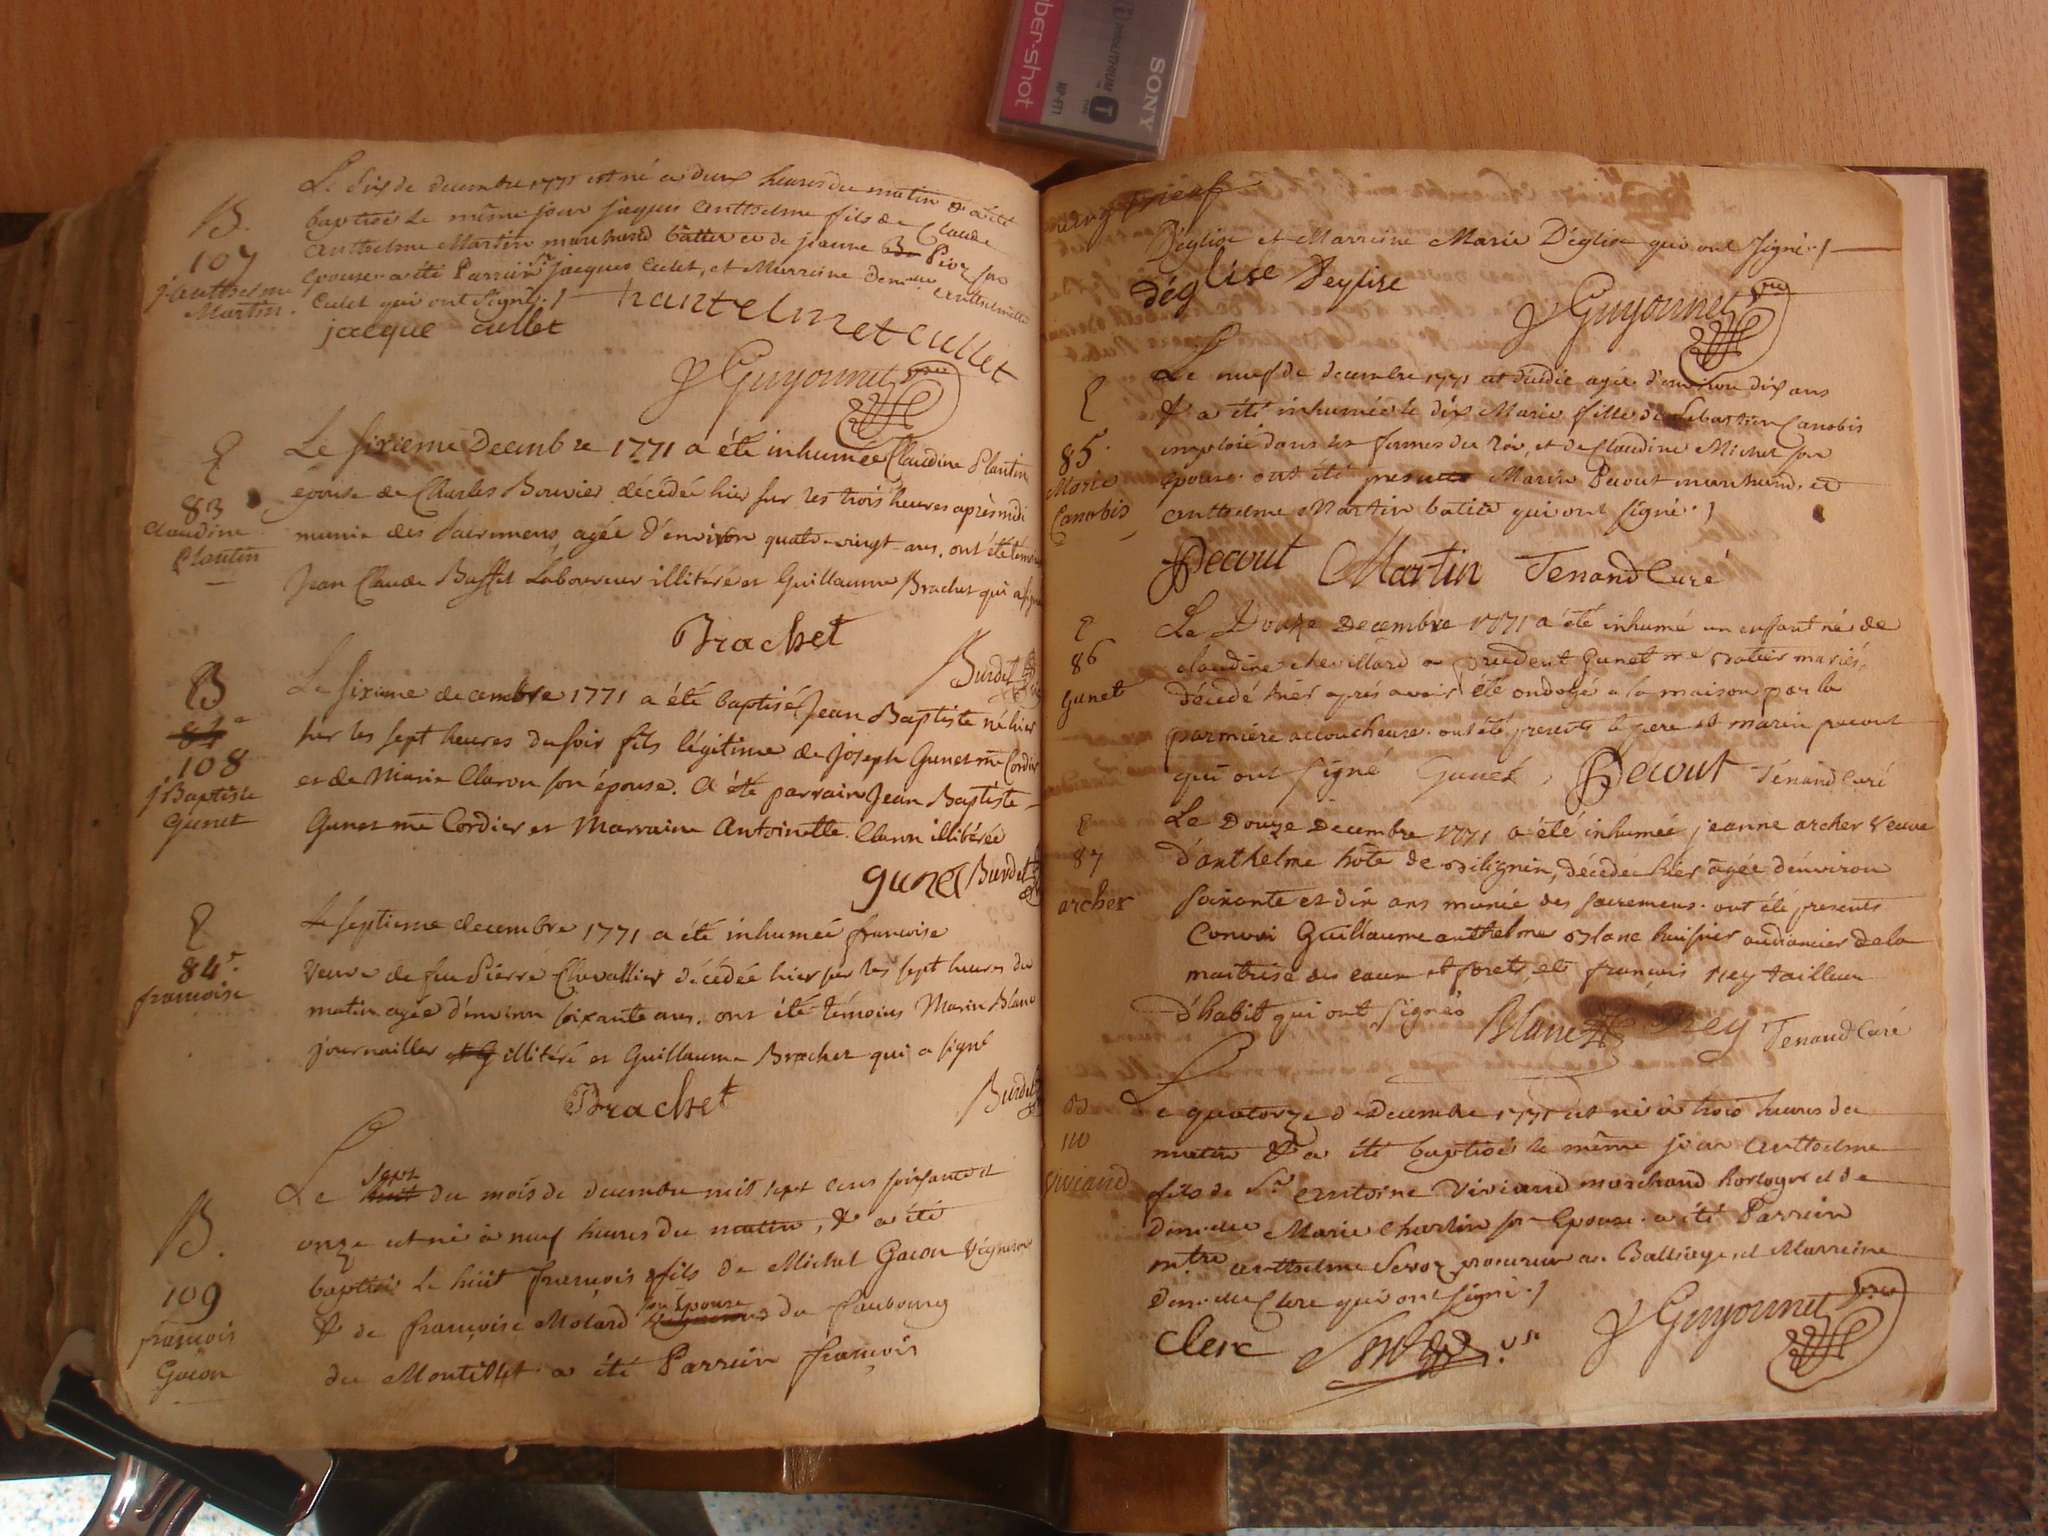 SONY
ber-shot
Le six de decembre 1771 est né a deux heures du matin & a été
B.
baptisé le même jour jaques Anthelme fils de Claude
Anthelme Martin marchand bâtier et de jeanne Pior son
107
j. Anthelme
Martin.
Epouse. a été Parrain jacques Culet, et Marreine Dem.elle Anthelmette
Culet qui ont signé ./
jacque cullet hantelmet cullet
Guyonnet vre
Le sixieme Decembre 1771 a été inhumée Claudine Plantin
83
Claudine
Plantin
épouse de Charles Bouvier décédée hier sur les trois heures après midi
munie des sacremens, agée d'environ quatre-vingt-ans, ont été témoins
Jean Claude Buffet Laboureur illitéré et Guillaume Brachet qui a signé
Brachet
Burdet
B
84e
108
j. Baptiste
gunet
Le sixieme decembre 1771 a été baptisé Jean Baptiste né hier
sur les sept heures du soir fils légitime de Joseph Gunet me Cordier
et de Marie Claron son épouse. A été parrain Jean Baptiste
Gunet me Cordier et Marraine Antoinette Claron illitérée
gunet Burdet
84e.
francoise
Le septieme decembre 1771 a été inhumée francoise
veuve de feu Pierre Chevallier décédée hier sur les sept heures du
matin agée d'environ soixante ans. ont été témoins Marin Blanc
journallier et G illitéré et Guillaume Brachet qui a signé
Brachet
Burdet
B.
109
françois
Gacon
sept
Le huit du mois de decembre mil sept cens soixante et
onze est né à neuf heures du matin, & a été
baptisé le huit françois fils de Michel Gacon Vigneron
son Epouse
& de françoise Molard Vignerons du faubourg
du Montillet a été Parrein françois
Déglise et Marreine Marie Déglise qui ont signé ./
déglise Deglise
Guyonnet vre
85.
Marie
Canobis
Le neuf de decembre 1771 est décédée agée d'environ dix ans
& a été inhumée le dix Marie fille de Sebastien Canobis
emploié dans les fermes du Roi, et de Claudine Michet son
épouse. ont été presents Marin Pecout marchand. et
Anthelme Martin batier qui ont signé ./
Pecout Martin Tenand Curé
86
gunet
Le Douze Decembre 1771 a été inhumé un enfant né de
claudine chevillard a prudent Gunet me patier mariés,
décédé hier après avoir été ondoyé a la maison par la
parmiére accoucheuse. ont été presents le pere et marin pecout
qui ont signé Gunet, Pecout Ténand Curé
87
archer
Le Douze Decembre 1771 a été inhumée jeanne archer veuve
d'anthelme hôte de Bilignin, décédée hier agée d'environ
soixante et dix ans munie des sacremens. ont été presents
Convoi Guillaume anthelme Blanc huissier audiancier de la
maitrise des eaux et forets, et françois Rey tailleur
d'habit qui ont signés Blanc Rey Tenand Curé
B
110
Viviand
Le quatorze de Decembre 1771 est né à trois heures du
matin & a été baptisé le même jour Anthelme
fils de Sr Antoine Viviand marchand horloger et de
Dem.elle Marie Charlin son Epouse. a été Parrein
mtre Anthelme Sevoz procureur au Balliage, et Marreine
Dem.elle Clerc qui ont signé ./
Clerc Guyonnet vre